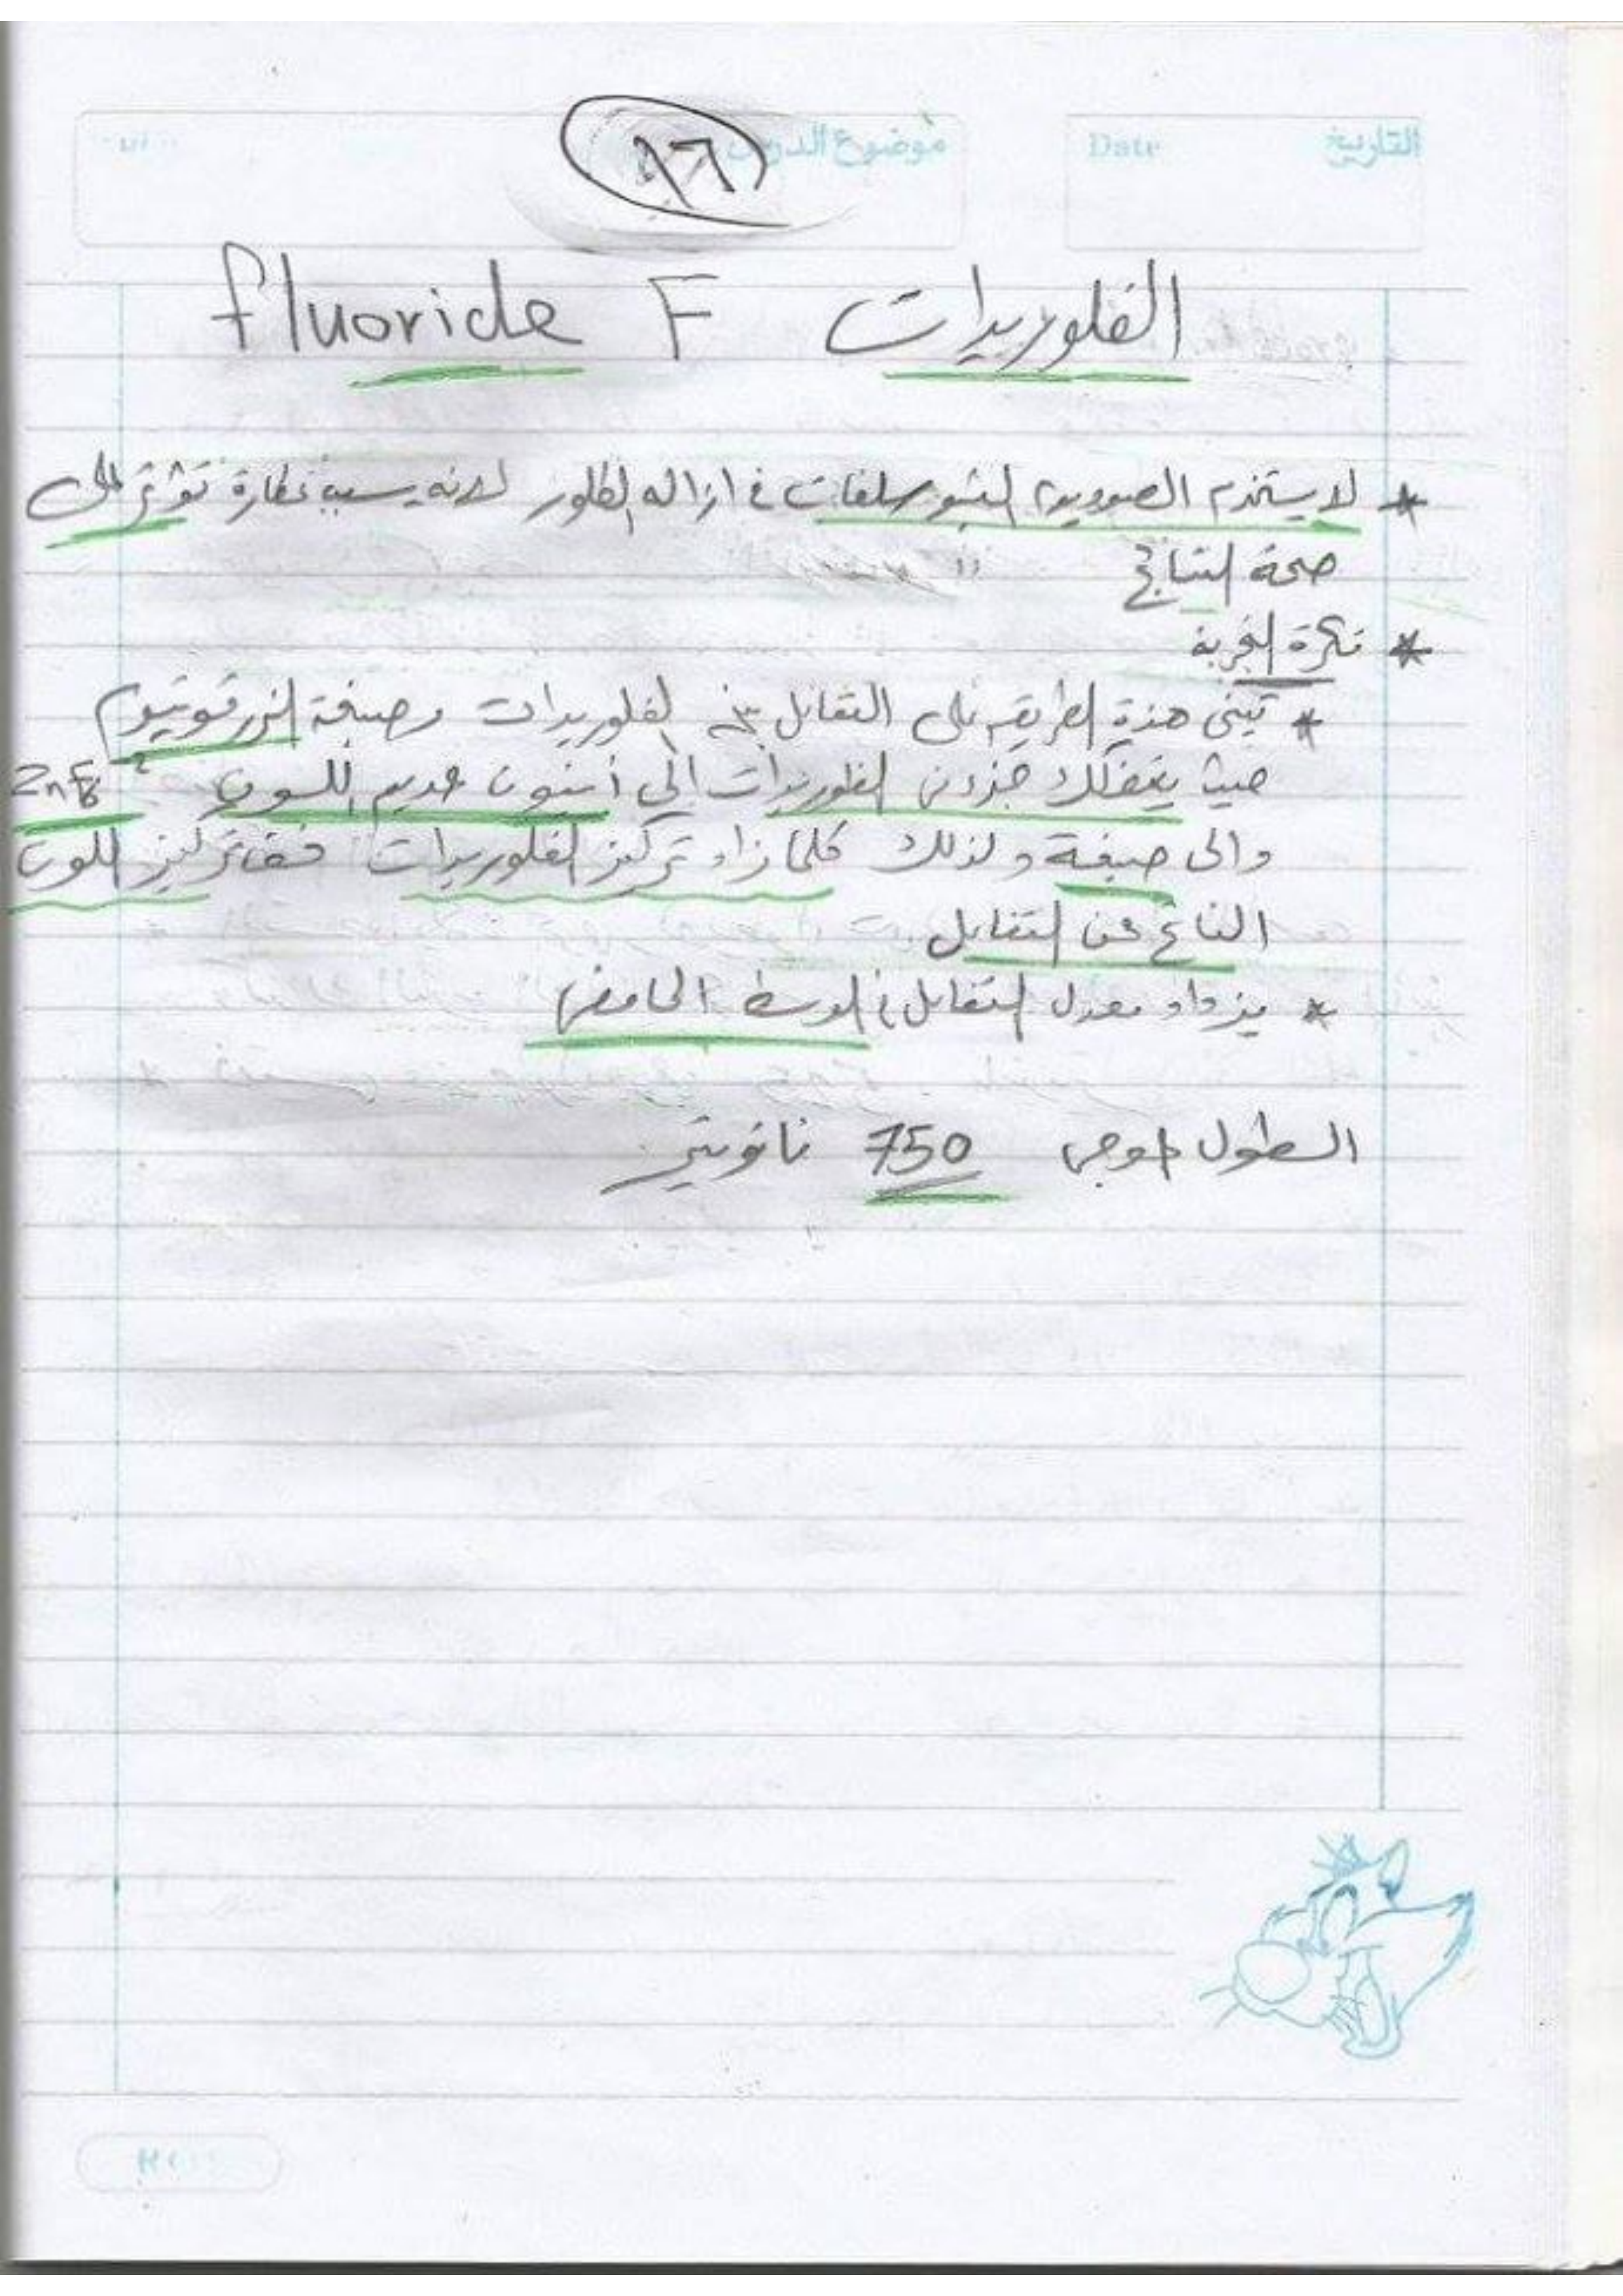 التاريخ Date موضوع الدرس
١٦
الفلوريدات fluoride F
* لا يستخدم الصوديوم الثيوسلفات في ازاله الكلور لانه يسبب عكارة تؤثر على
صحة النتائج
* فكرة التجربة
* تبنى هذة الطريقه على التفاعل بين الفلوريدات وصبغة الزرقونيوم
حيث يتفكك جزء من الفلوريدات الى أنيون عديم اللون
والى صبغة ولذلك كلما زاد تركيز الفلوريدات خف تركيز اللون
الناتج عن التفاعل
* يزداد معدل التفاعل في الوسط الحامضى
الطول الموجى 750 نانوميتر